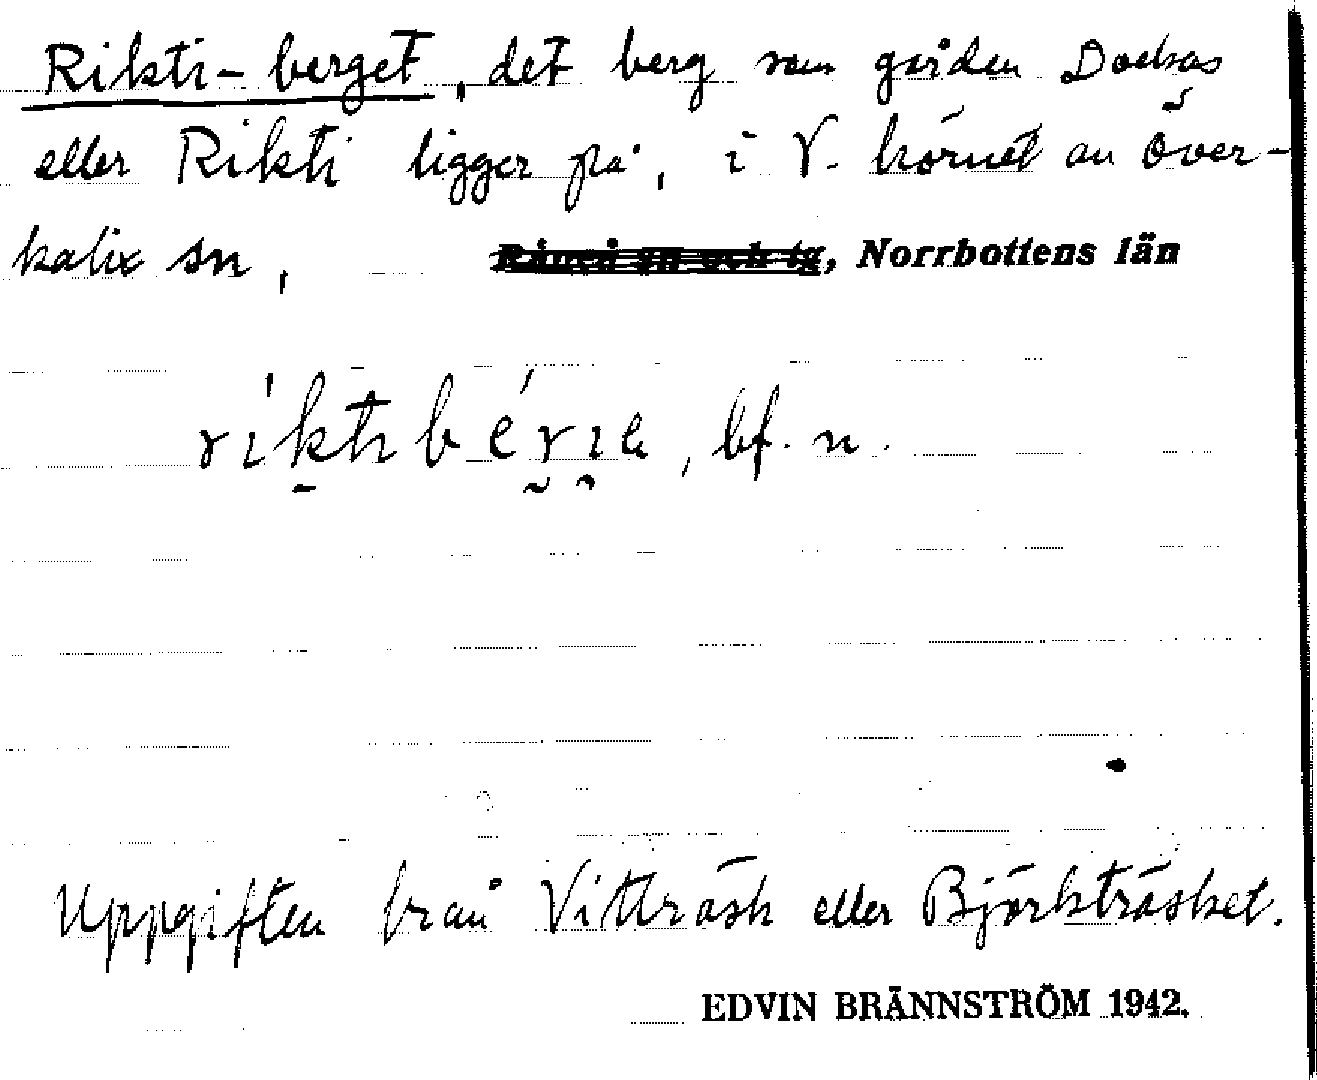 Rikti-berget, det berg som gården Dockas
eller Rikti ligger på, i V. hörnet av Över-
kalix sn, Råneå sn och tg, Norrbottens län
bf. n.
Uppgiften från Vitträsk eller Björkträsket.
EDVIN BRÄNNSTRÖM 1942.